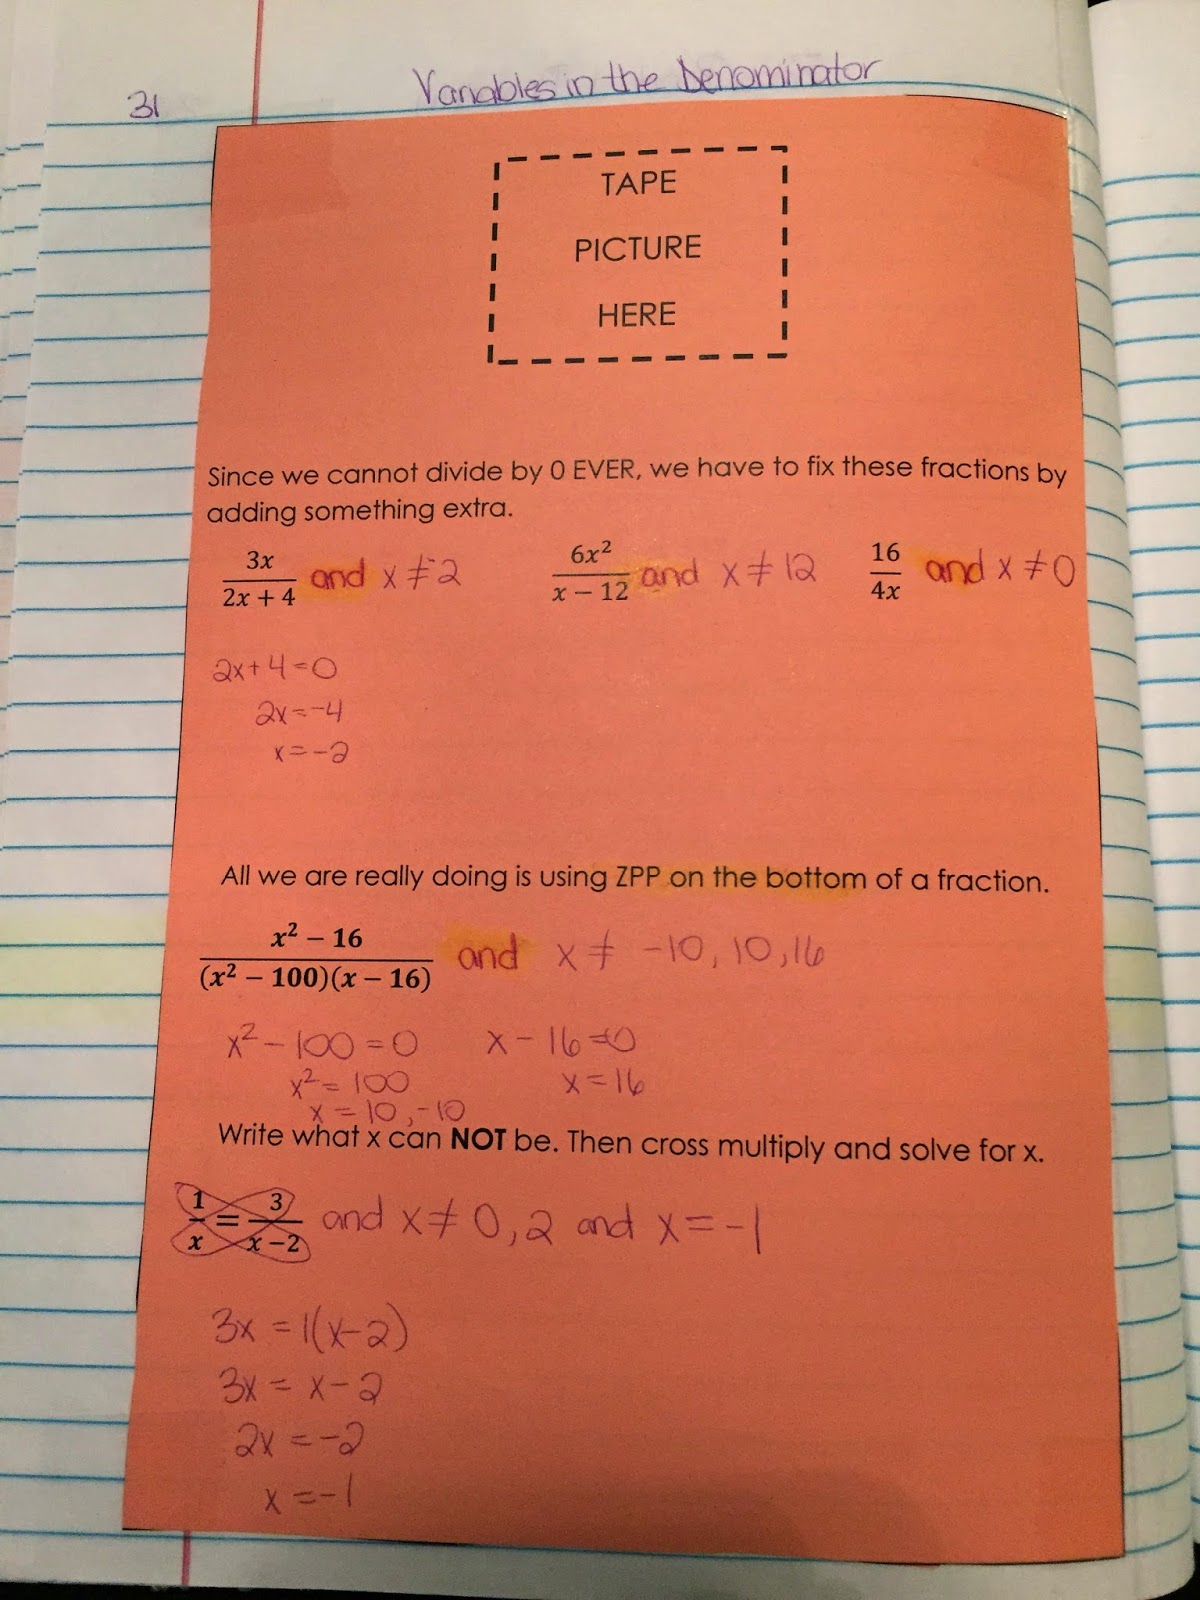 31
Variables in the Denominator
TAPE
PICTURE
HERE
Since we cannot divide by 0 EVER, we have to fix these fractions by
adding something extra.
3x/(2x + 4) and x ≠ -2   6x²/(x − 12) and x ≠ 12   16/4x and x ≠ 0
2x+4=0
2x=-4
x=-2
All we are really doing is using ZPP on the bottom of a fraction.
(x² − 16)/((x² − 100)(x − 16)) and x ≠ -10, 10, 16
x² - 100 = 0   x - 16 = 0
x² = 100   x = 16
x = 10, -10
Write what x can NOT be. Then cross multiply and solve for x.
1/x = 3/(x − 2) and x ≠ 0, 2 and x = -1
3x = 1(x-2)
3x = x - 2
2x = -2
x = -1